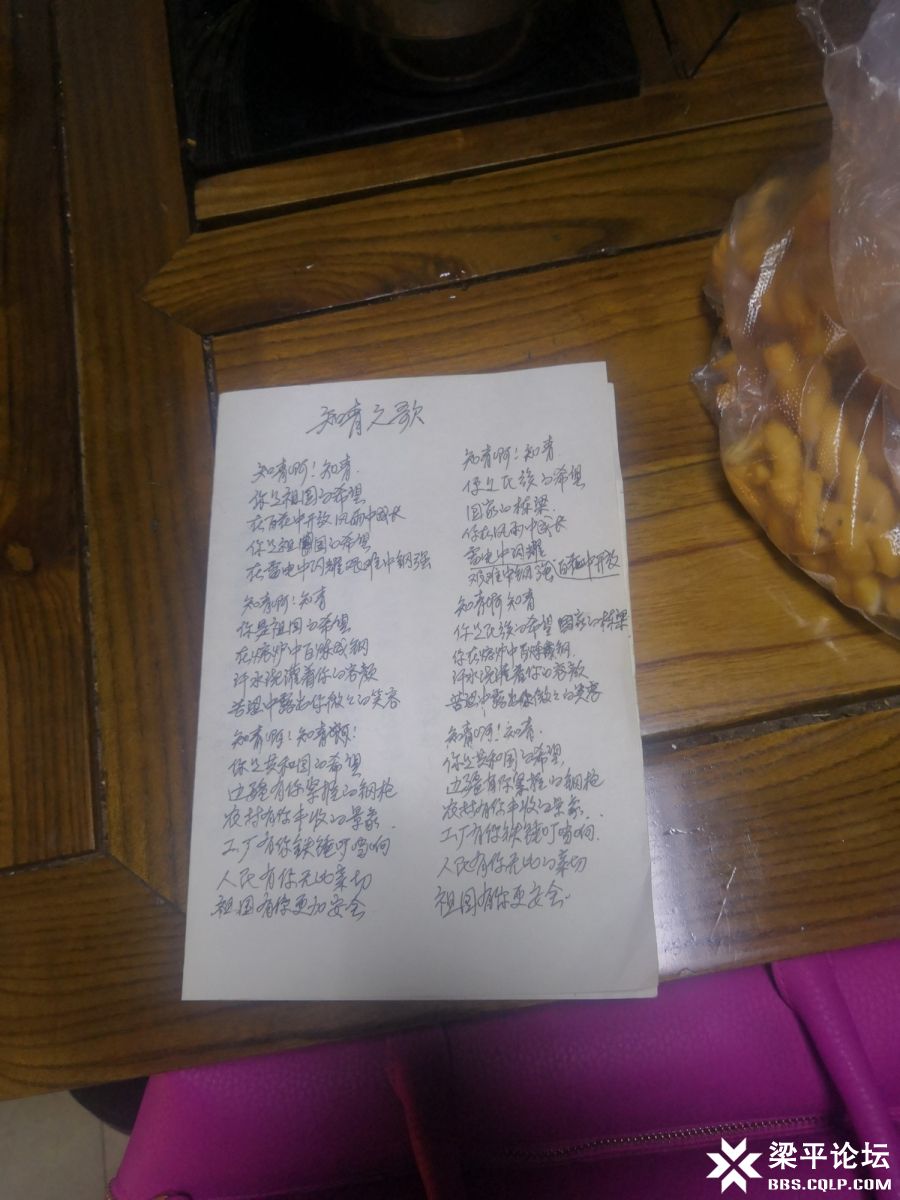 知青之歌
知青啊!知青
你是祖国的希望
在百花中开放风雨中成长
你是祖国的希望
在雷电中闪耀艰难中钢强
知青啊!知青
你是祖国的希望
在熔炉中百炼成钢
汗水浇灌着你的容颜
苦涩中露出你微々的笑容
知青啊!知青
你是共和国的希望
边疆有你掌握的钢枪
农村有你丰收的景象
工厂有你铁锤叮当响
人民有你无比亲切
祖国有你更加安全
知青啊!知青
你是民族的希望
国家的栋梁
你在风雨中成长
雷电中闪耀
艰难中钢强百花中开放
知青啊知青
你是民族的希望国家的栋梁
你在熔炉中百炼成钢
汗水浇灌着你的容颜
苦涩中露出你微々的笑容
知青啊!知青
你是共和国的希望
边疆有你掌握的钢枪
农村有你丰收的景象
工厂有你铁锤叮当响
人民有你无比的亲切
祖国有你更安全
梁平论坛
BBS.CQLP.COM